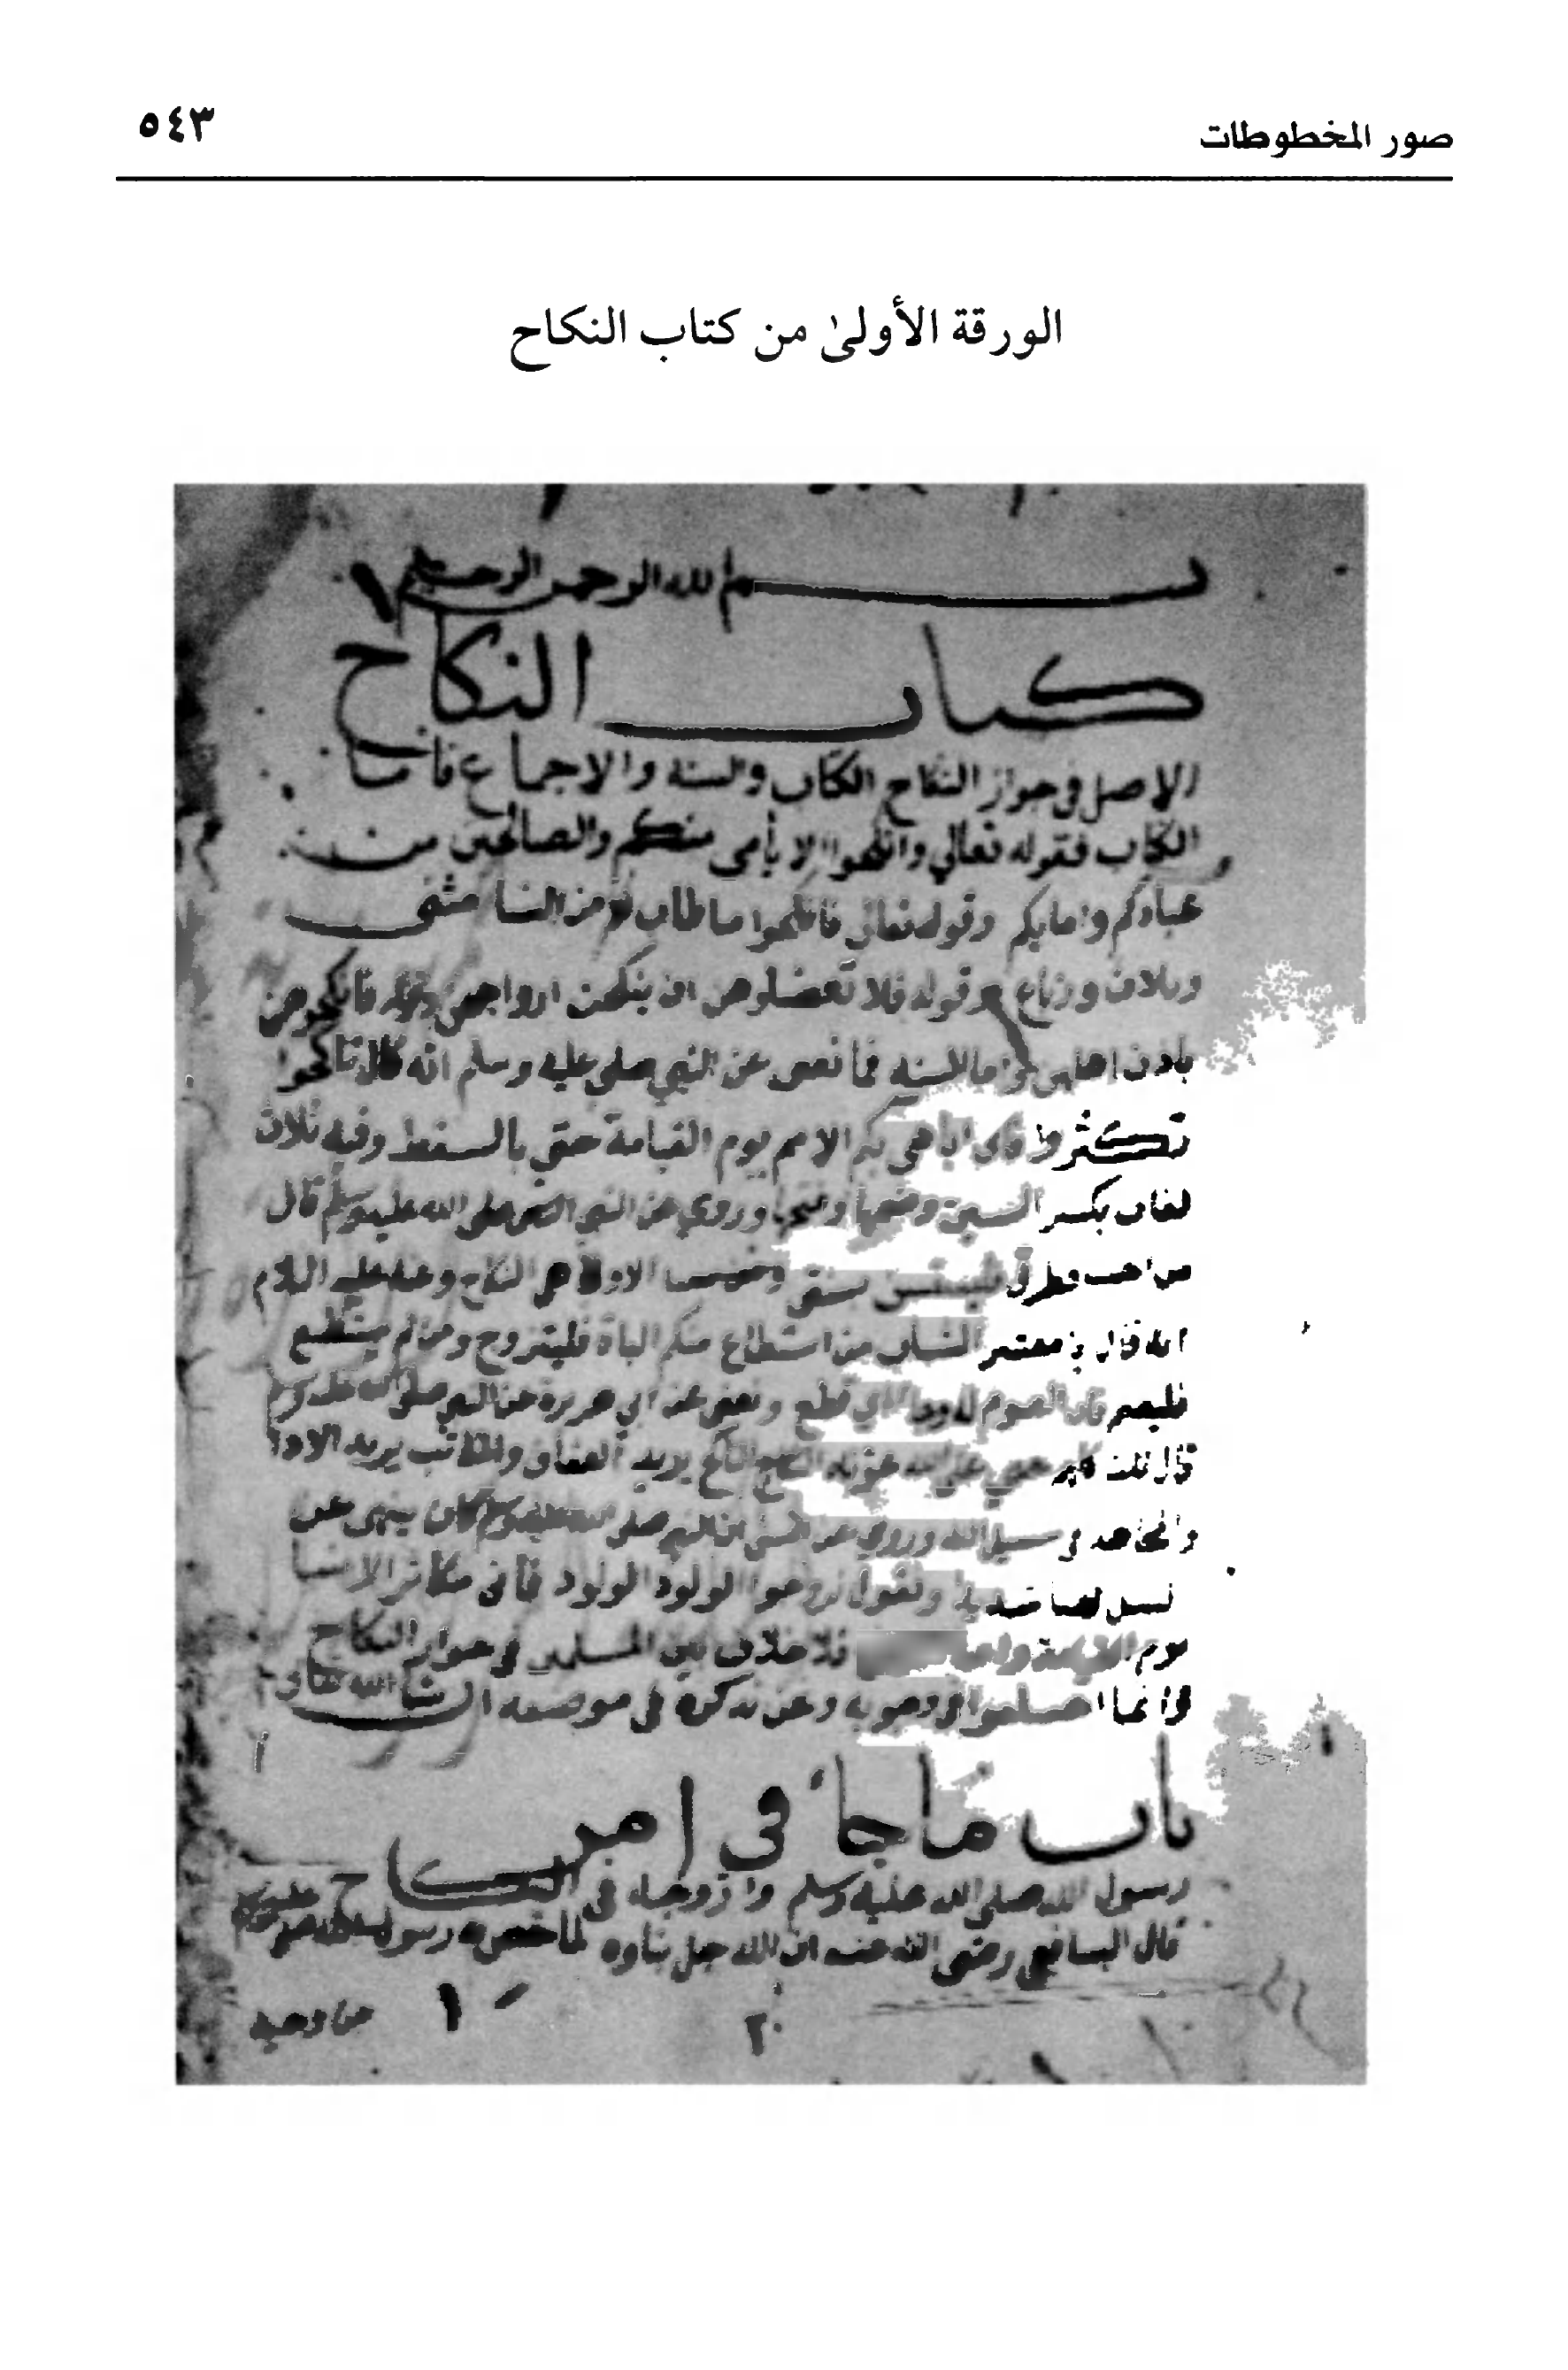 صور المخطوطات
٥٤٣
الورقة الأولىٰ من كتاب النكاح
بسم الله الرحمن الرحيم
كتاب النكاح
الاصل في جواز النكاح الكتاب والسنه والاجماع فاما
الكتاب فقوله تعالي وانكحوا الايامى منكم والصالحين من
عبادكم وامايكم وقوله تعالى فانكحوا ما طاب لكم من النسا مثنى
وثلاث ورباع وقوله فلا تعضلوهن ان ينكحن ازواجهن وقوله فانكحوهن
باذن اهلهن واما السنه فما عن النبي صلى عليه وسلم انه قال تناكحوا
تكثروا فاني اباهي بكم الامم يوم القيامة حتى بالسقط وفيه ثلاث
لغات بكسر السين وضمها وفتحها وروي عن النبي صلى الله عليه وسلم قال
من احب فطرتي فليستن بسنتي الا وهي النكاح وعنه عليه السلام
انه قال يا معشر الشباب من استطاع منكم الباة فليتزوج ومن لم يستطع
فليصم فان الصوم له وجا اي قطع وعن ابي هريرة عن النبي صلى الله عليه وسلم
قال ثلث حق على الله عونه الناكح يريد العفاف والمكاتب يريد الادا
والمجاهد في سبيل الله وروي عن انس ان النبي صلى الله عليه وسلم كان ينهى عن
شديدا ويقول تزوجوا الولود فاني مكاثر الانبيا
يوم القيامة واما فلا خلاف بين المسلمين في جواز النكاح
وانما اختلفوا في وجوبه ونحن نذكره في موضعه ان شا الله تعالى
باب ما جا في امر
رسول الله صلى الله عليه وسلم وازواجه في النكاح
قال الشافعي رضي الله عنه ان الله جل ثناوه لما خص به رسوله
من وحيه